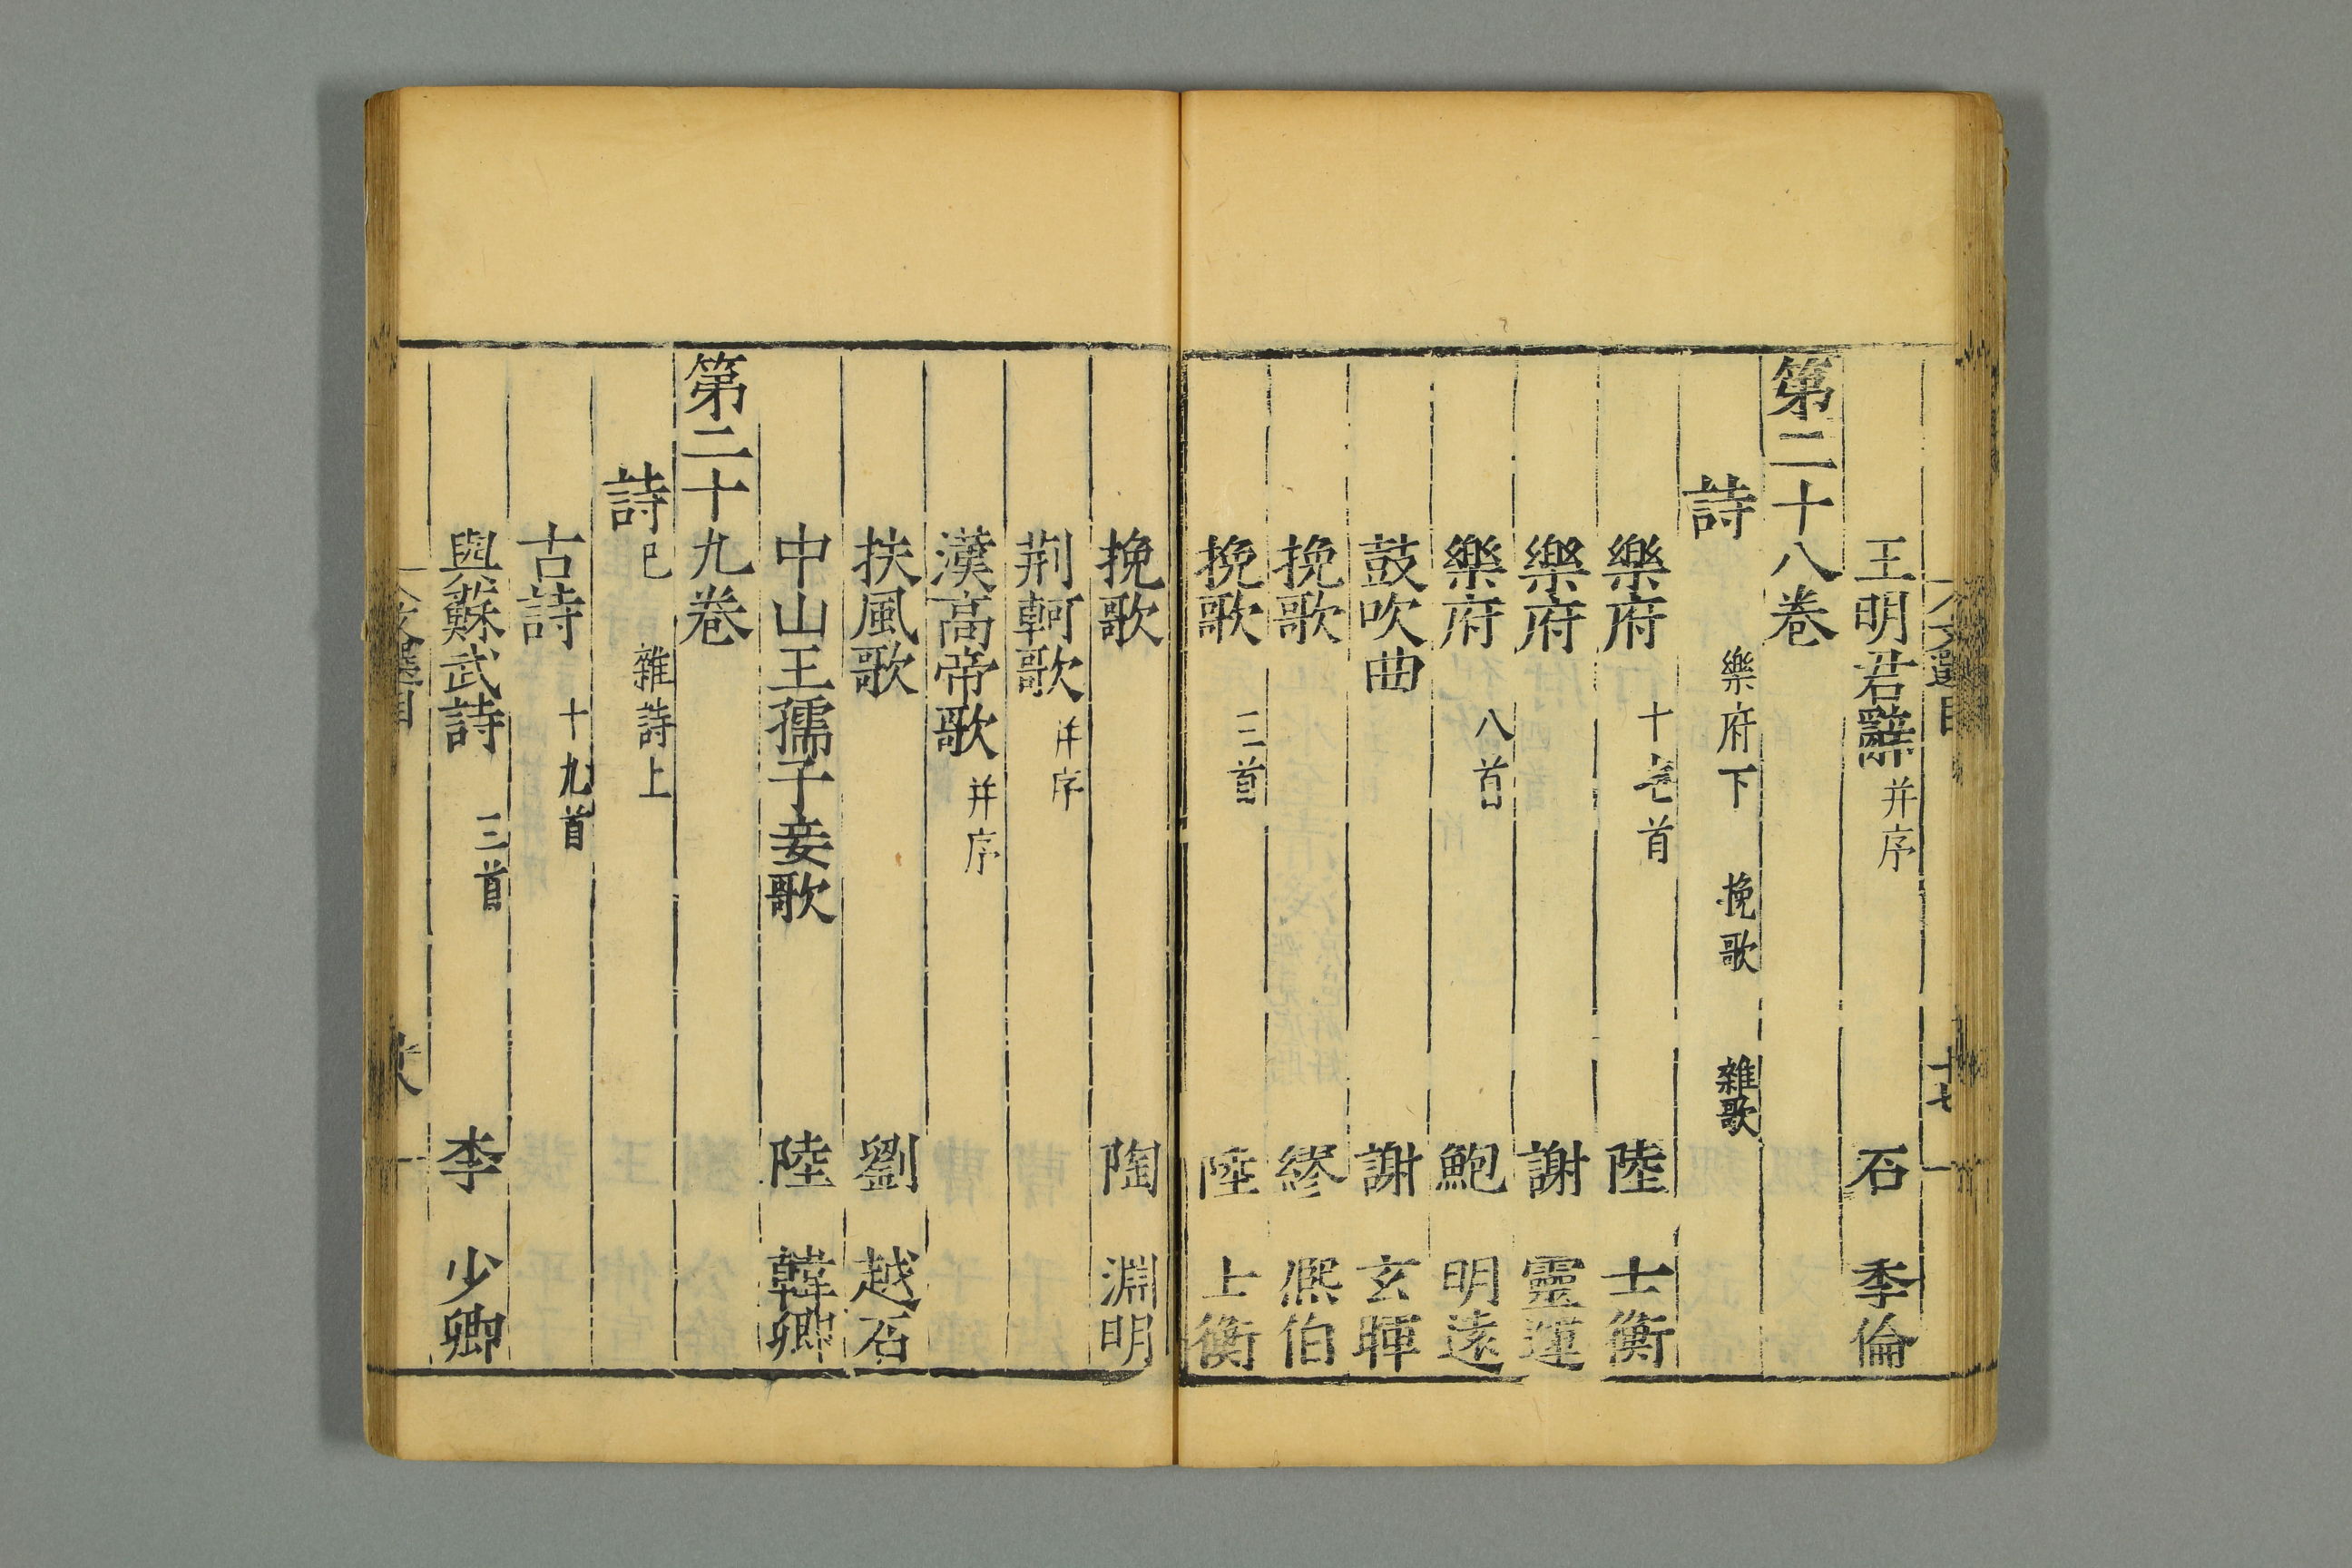 文選目 十七
王明君辭 并序 石 季倫
第二十八卷
詩 樂府下 挽歌 雜歌
樂府 十七首 陸 士衡
樂府 謝 靈運
樂府 八首 鮑 明遠
鼓吹曲 謝 玄暉
挽歌 繆 熈伯
挽歌 三首 陸 士衡
挽歌 陶 淵明
荆軻歌 并序
漢高帝歌 并序
扶風歌 劉 越石
中山王孺子妾歌 陸 韓卿
第二十九卷
詩 己 雜詩上
古詩 十九首
與蘇武詩 三首 李 少卿
文選目